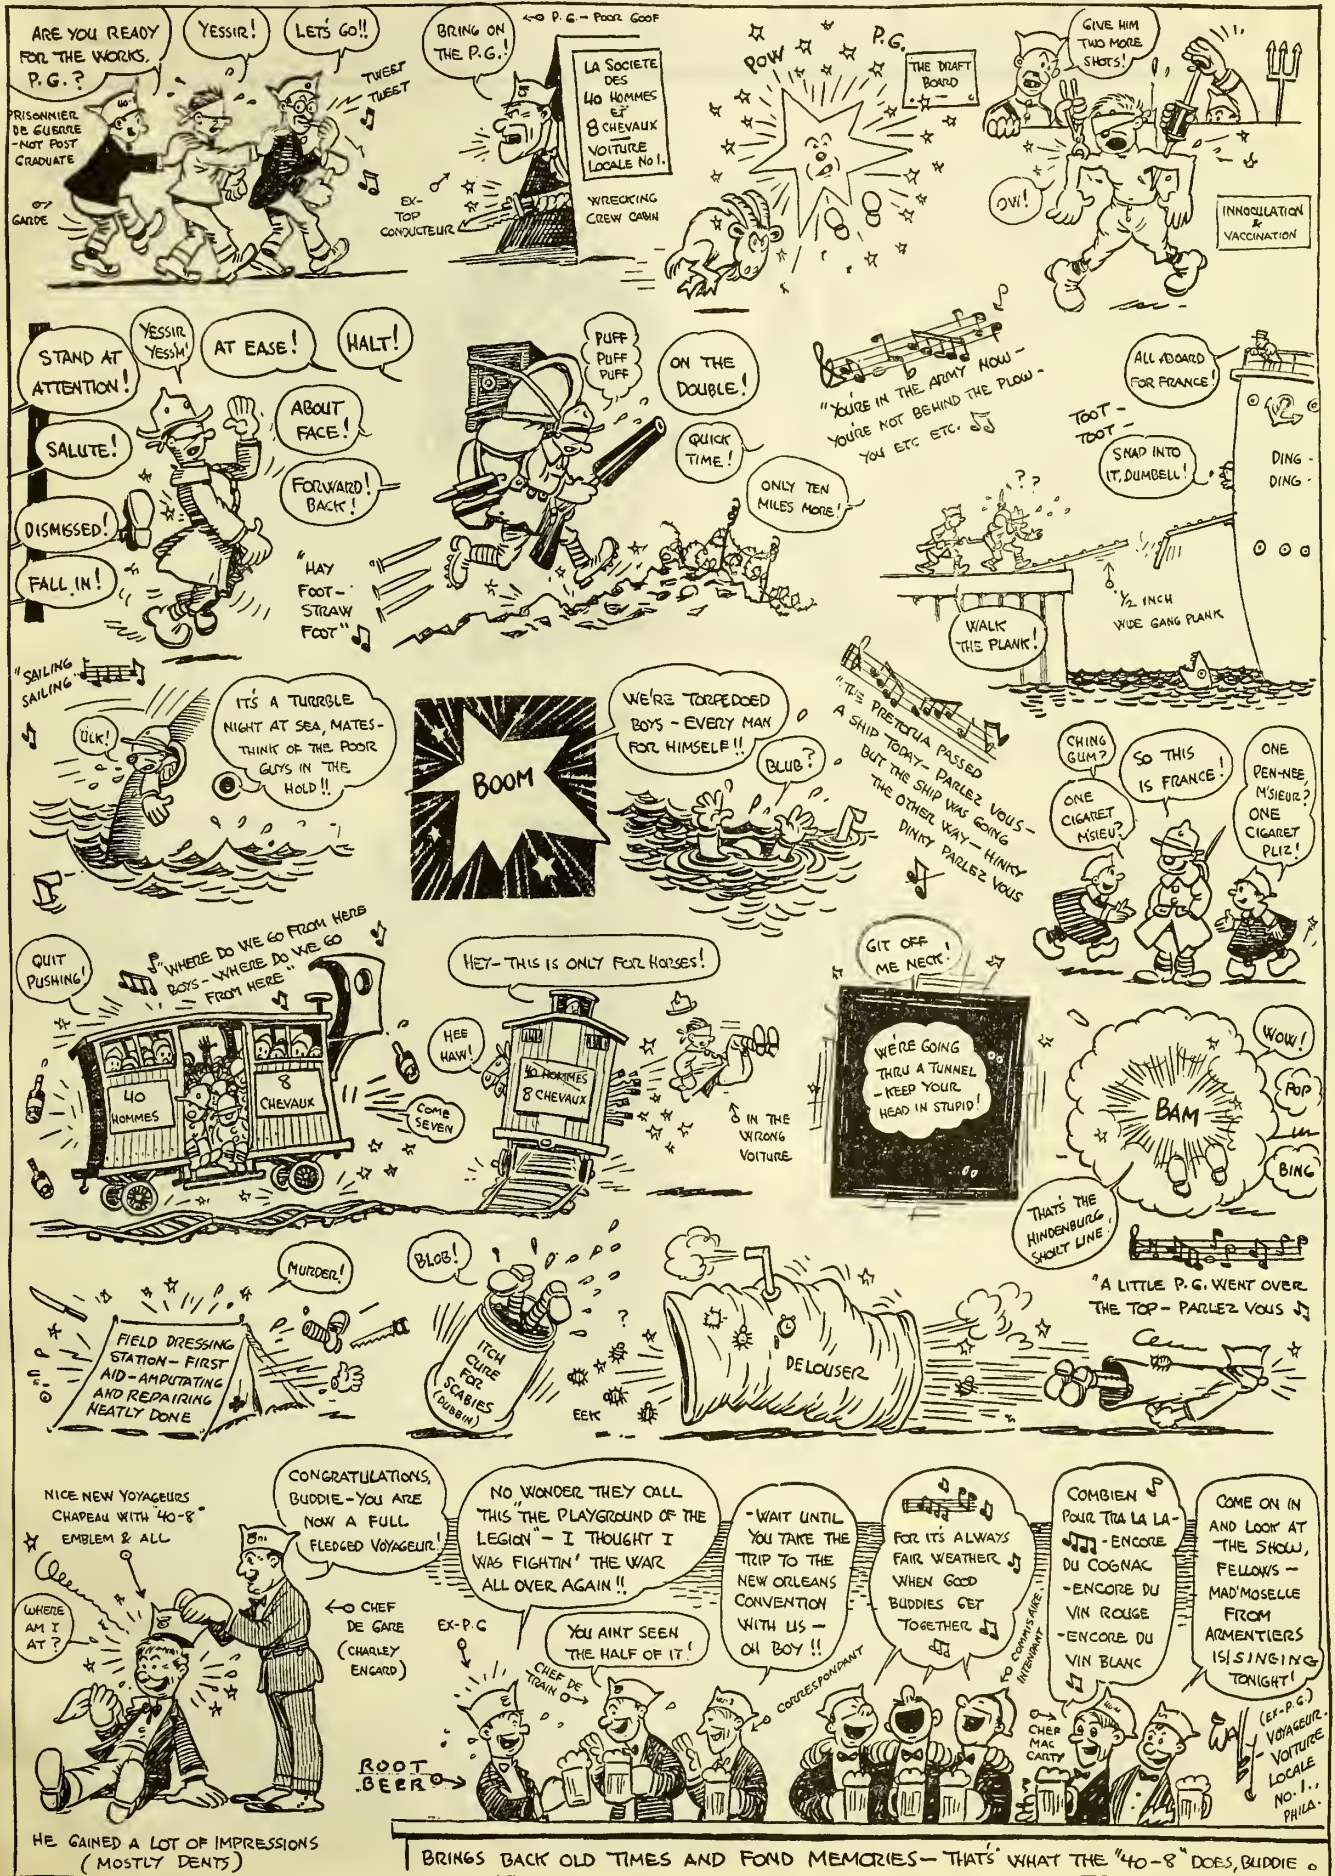 ARE YOU READY
FOR THE WORKS.
P.G.?
YESSIR!
LET'S GO!!
TWEET
TWEET
PRISONNIER
DE GUERRE
-NOT POST
GRADUATE
GARDE
40
BRING ON
THE P.G.!
P.G. - POOR GOOF
LA SOCIETE
DES
40 HOMMES
ET
8 CHEVAUX
—
VOITURE
LOCALE NO 1.
WRECKING
CREW CABIN
EX-
TOP
CONDUCTEUR
POW
P.G.
THE DRAFT
BOARD
GIVE HIM
TWO MORE
SHOTS!
OW!
INNOCULATION
&
VACCINATION
STAND AT
ATTENTION!
YESSIR
YESS'M!
AT EASE!
HALT!
SALUTE!
ABOUT
FACE!
FORWARD!
BACK!
DISMISSED!
FALL IN!
"HAY
FOOT-
STRAW
FOOT"
PUFF
PUFF
PUFF
ON THE
DOUBLE!
QUICK
TIME!
ONLY TEN
MILES MORE!
"YOU'RE IN THE ARMY NOW-
YOU'RE NOT BEHIND THE PLOW-
YOU ETC ETC.
ALL ABOARD
FOR FRANCE!
TOOT-
TOOT-
SNAP INTO
IT, DUMBELL!
DING-
DING-
? ?
1/2 INCH
WIDE GANG PLANK
WALK
THE PLANK!
"SAILING
SAILING"
ULK!
IT'S A TURRBLE
NIGHT AT SEA, MATES-
THINK OF THE POOR
GUYS IN THE
HOLD!!
BOOM
WE'RE TORPEDOED
BOYS - EVERY MAN
FOR HIMSELF!!
BLUB?
"THE PRETORIA PASSED
A SHIP TODAY- PARLEZ VOUS-
BUT THE SHIP WAS GOING
THE OTHER WAY- HINKY
DINKY PARLEZ VOUS
CHING
GUM?
ONE
CIGARET
M'SIEU?
SO THIS
IS FRANCE!
ONE
PEN-NEE,
M'SIEUR?
ONE
CIGARET
PLIZ!
QUIT
PUSHING!
"WHERE DO WE GO FROM HERE
BOYS-WHERE DO WE GO
FROM HERE"
40
HOMMES
8
CHEVAUX
COME
SEVEN
HEY- THIS IS ONLY FOR HORSES!
HEE
HAW!
40 HOMMES
8 CHEVAUX
IN THE
WRONG
VOITURE
GIT OFF
ME NECK!
WE'RE GOING
THRU A TUNNEL
-KEEP YOUR
HEAD IN STUPID!
BAM
WOW!
POP
BING
THAT'S THE
HINDENBURG
SHORT LINE!
"A LITTLE P.G. WENT OVER
THE TOP- PARLEZ VOUS
MURDER!
FIELD DRESSING
STATION- FIRST
AID-AMPUTATING
AND REPAIRING
NEATLY DONE
BLOB!
ITCH
CURE
FOR
SCABIES
(DUBBIN)
?
EEK
DELOUSER
NICE NEW VOYAGEURS
CHAPEAU WITH "40-8"
EMBLEM & ALL
WHERE
AM I
AT?
CONGRATULATIONS,
BUDDIE-YOU ARE
NOW A FULL
FLEDGED VOYAGEUR!
CHEF
DE GARE
(CHARLEY
ENGARD)
HE GAINED A LOT OF IMPRESSIONS
(MOSTLY DENTS)
NO WONDER THEY CALL
THIS "THE PLAYGROUND OF THE
LEGION"- I THOUGHT I
WAS FIGHTIN' THE WAR
ALL OVER AGAIN!!
EX-P.G
YOU AINT SEEN
THE HALF OF IT!
CHEF DE
TRAIN
ROOT
BEER
-WAIT UNTIL
YOU TAKE THE
TRIP TO THE
NEW ORLEANS
CONVENTION
WITH US-
OH BOY!!
CORRESPONDANT
FOR IT'S ALWAYS
FAIR WEATHER
WHEN GOOD
BUDDIES GET
TOGETHER
COMMISSAIRE
INTENDANT
COMBIEN
POUR TRA LA LA-
-ENCORE
DU COGNAC
-ENCORE DU
VIN ROUGE
-ENCORE DU
VIN BLANC
CHEF
MAC
CARTY
COME ON IN
AND LOOK AT
THE SHOW,
FELLOWS-
MAD'MOSELLE
FROM
ARMENTIERS
IS SINGING
TONIGHT!
(EX-P.G.)
VOYAGEUR-
VOITURE
LOCALE
NO.1.,
PHILA.
BRINGS BACK OLD TIMES AND FOND MEMORIES- THAT'S WHAT THE "40-8" DOES, BUDDIE.